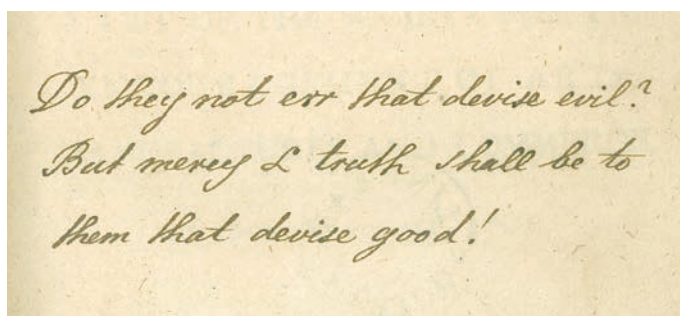 Do they not err that devise evil?
But mercy & truth shall be to
them that devise good!